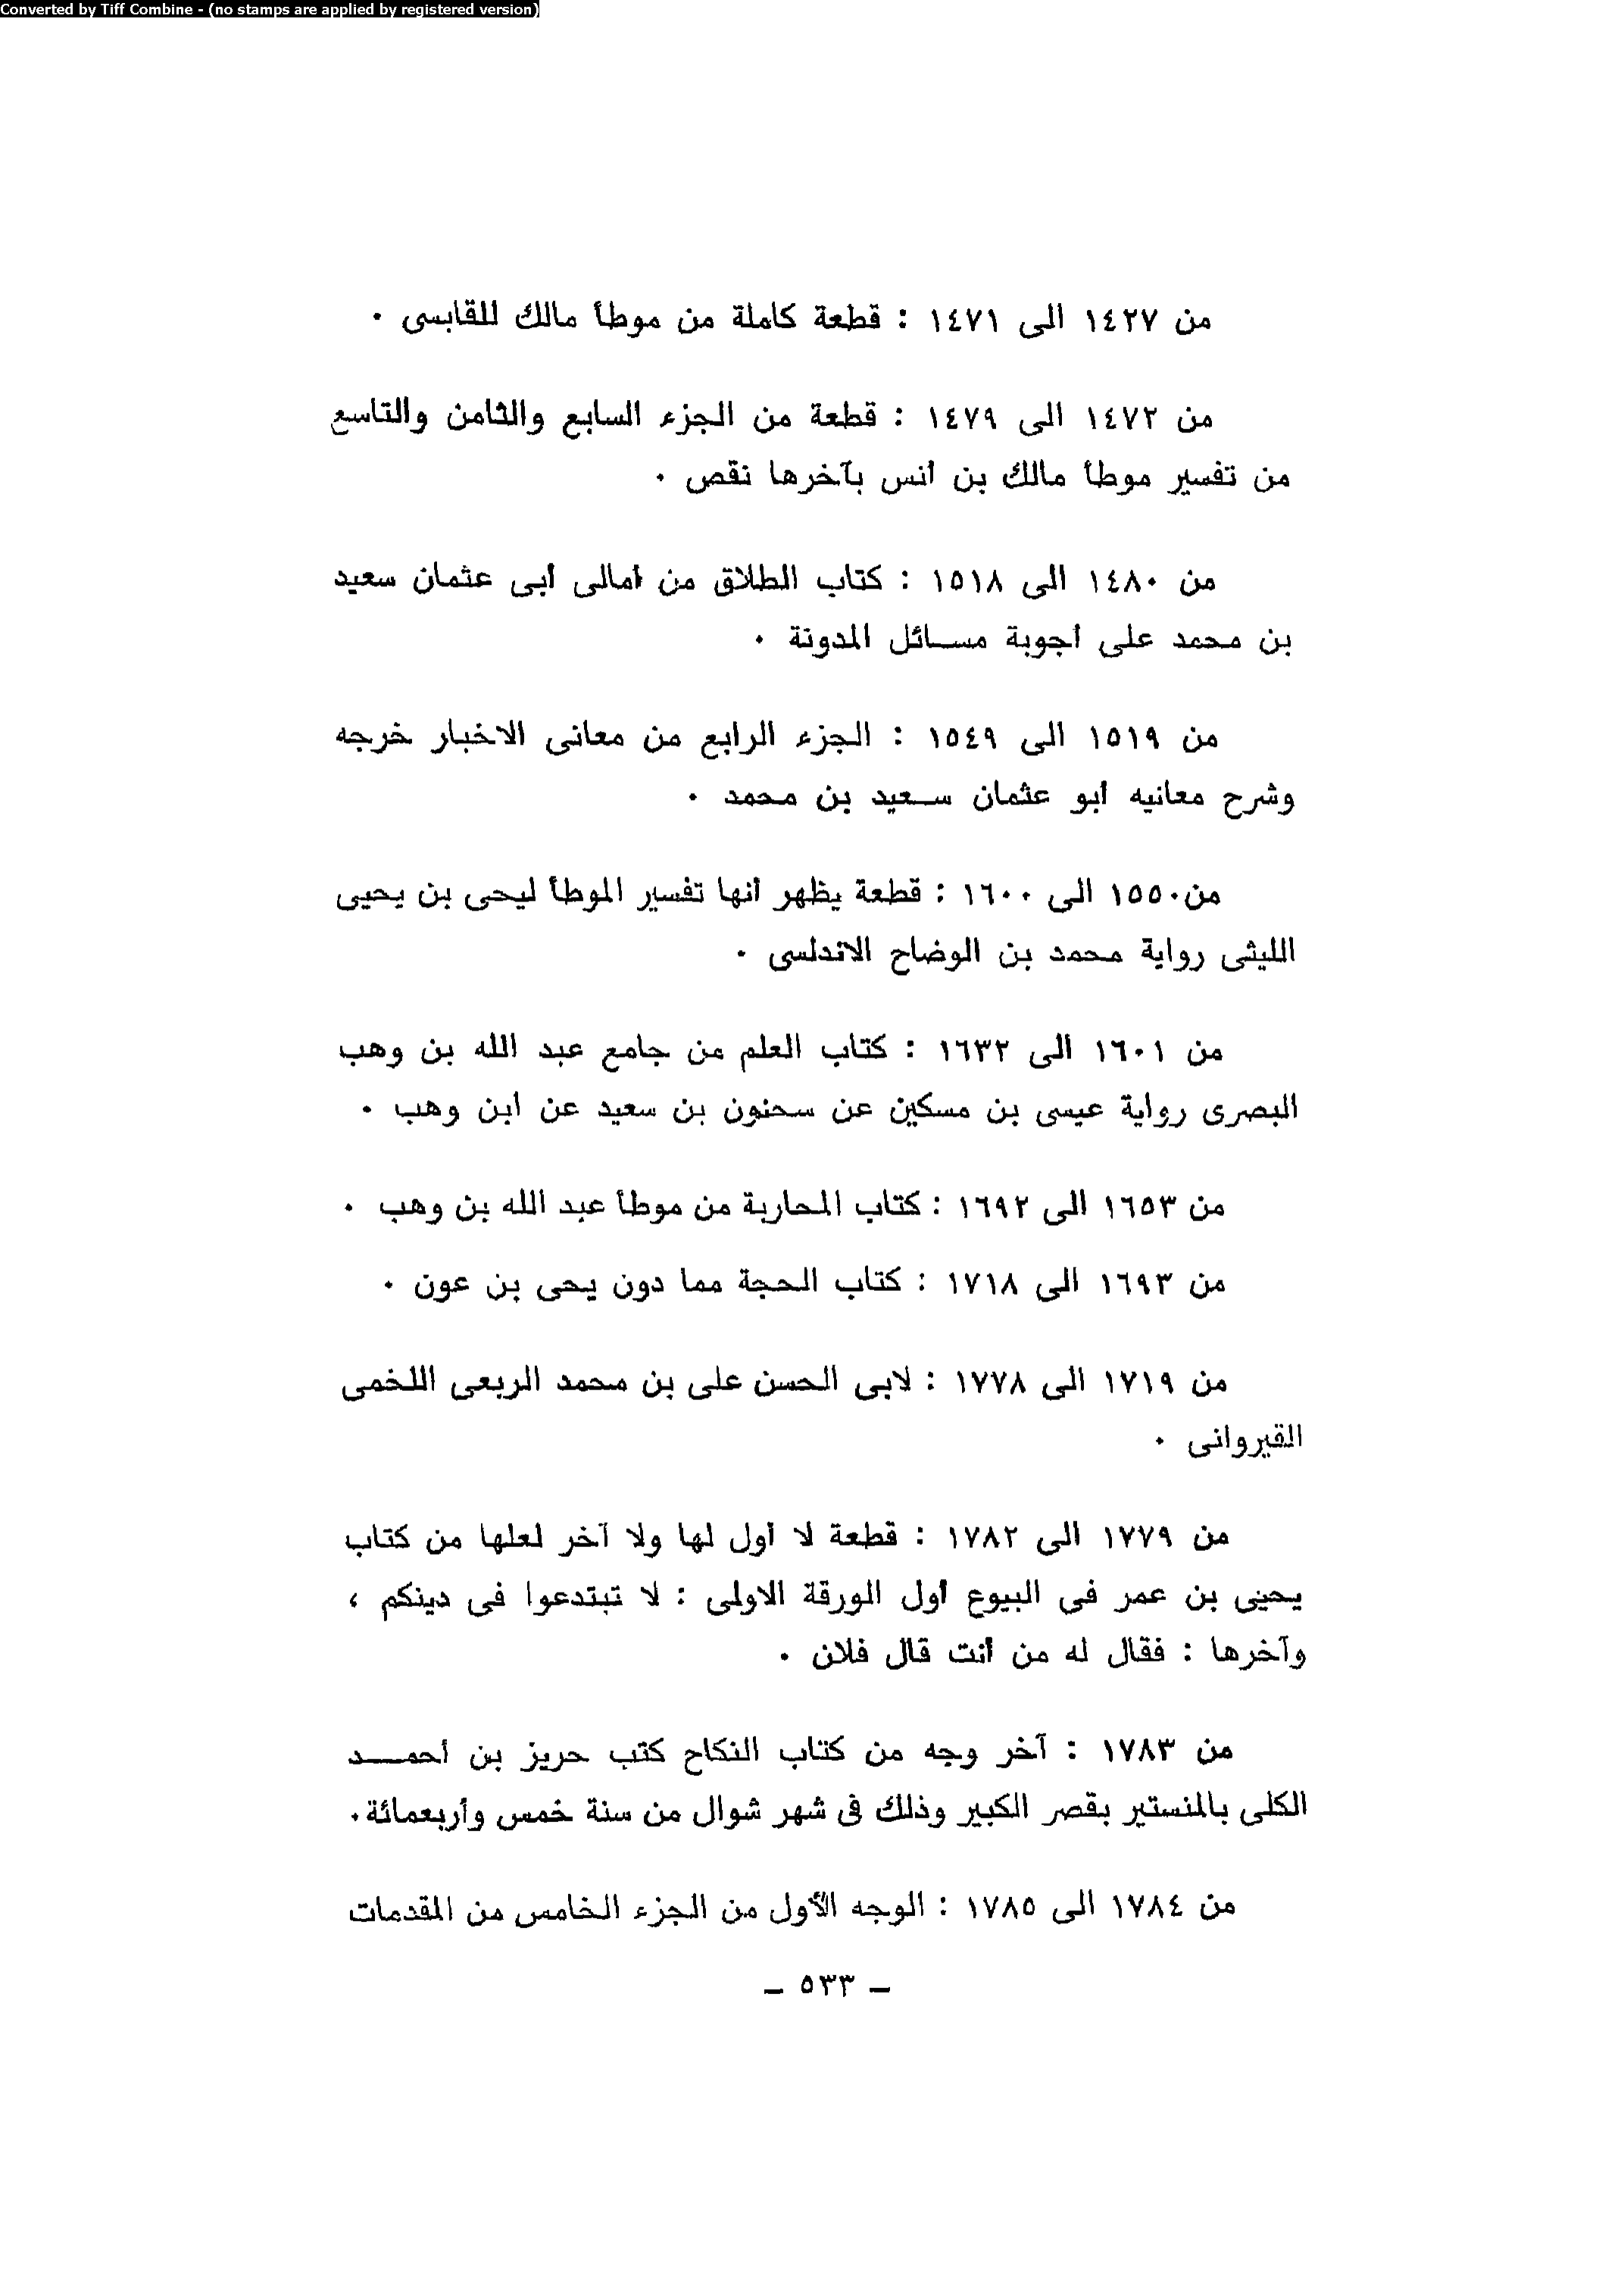 Converted by Tiff Combine - (no stamps are applied by registered version)
من ١٤٢٧ الى ١٤٧١ : قطعة كاملة من موطأ مالك للقابسى ٠
من ١٤٧٢ الى ١٤٧٩ : قطعة من الجزء السابع والثامن والتاسع
من تفسير موطأ مالك بن أنس بآخرها نقص ٠
من ١٤٨٠ الى ١٥١٨ : كتاب الطلاق من أمالى أبى عثمان سعيد
بن محمد على أجوبة مسائل المدونة ٠
من ١٥١٩ الى ١٥٤٩ : الجزء الرابع من معانى الاخبار خرجه
وشرح معانيه أبو عثمان سعيد بن محمد ٠
من ١٥٥٠ الى ١٦٠٠ : قطعة يظهر أنها تفسير الموطأ ليحى بن يحيى
الليثى رواية محمد بن الوضاح الاندلسى ٠
من ١٦٠١ الى ١٦٣٢ : كتاب العلم من جامع عبد الله بن وهب
البصرى رواية عيسى بن مسكين عن سحنون بن سعيد عن ابن وهب ٠
من ١٦٥٣ الى ١٦٩٢ : كتاب المحاربة من موطأ عبد الله بن وهب ٠
من ١٦٩٣ الى ١٧١٨ : كتاب الحجة مما دون يحى بن عون ٠
من ١٧١٩ الى ١٧٧٨ : لابى الحسن على بن محمد الربعى اللخمى
القيروانى ٠
من ١٧٧٩ الى ١٧٨٢ : قطعة لا أول لها ولا آخر لعلها من كتاب
يحيى بن عمر فى البيوع أول الورقة الاولى : لا تبتدعوا فى دينكم ،
وآخرها : فقال له من أنت قال فلان ٠
من ١٧٨٣ : آخر وجه من كتاب النكاح كتب حريز بن أحمد
الكلى بالمنستير بقصر الكبير وذلك فى شهر شوال من سنة خمس وأربعمائة٠
من ١٧٨٤ الى ١٧٨٥ : الوجه الأول من الجزء الخامس من المقدمات
– ٥٣٣ –